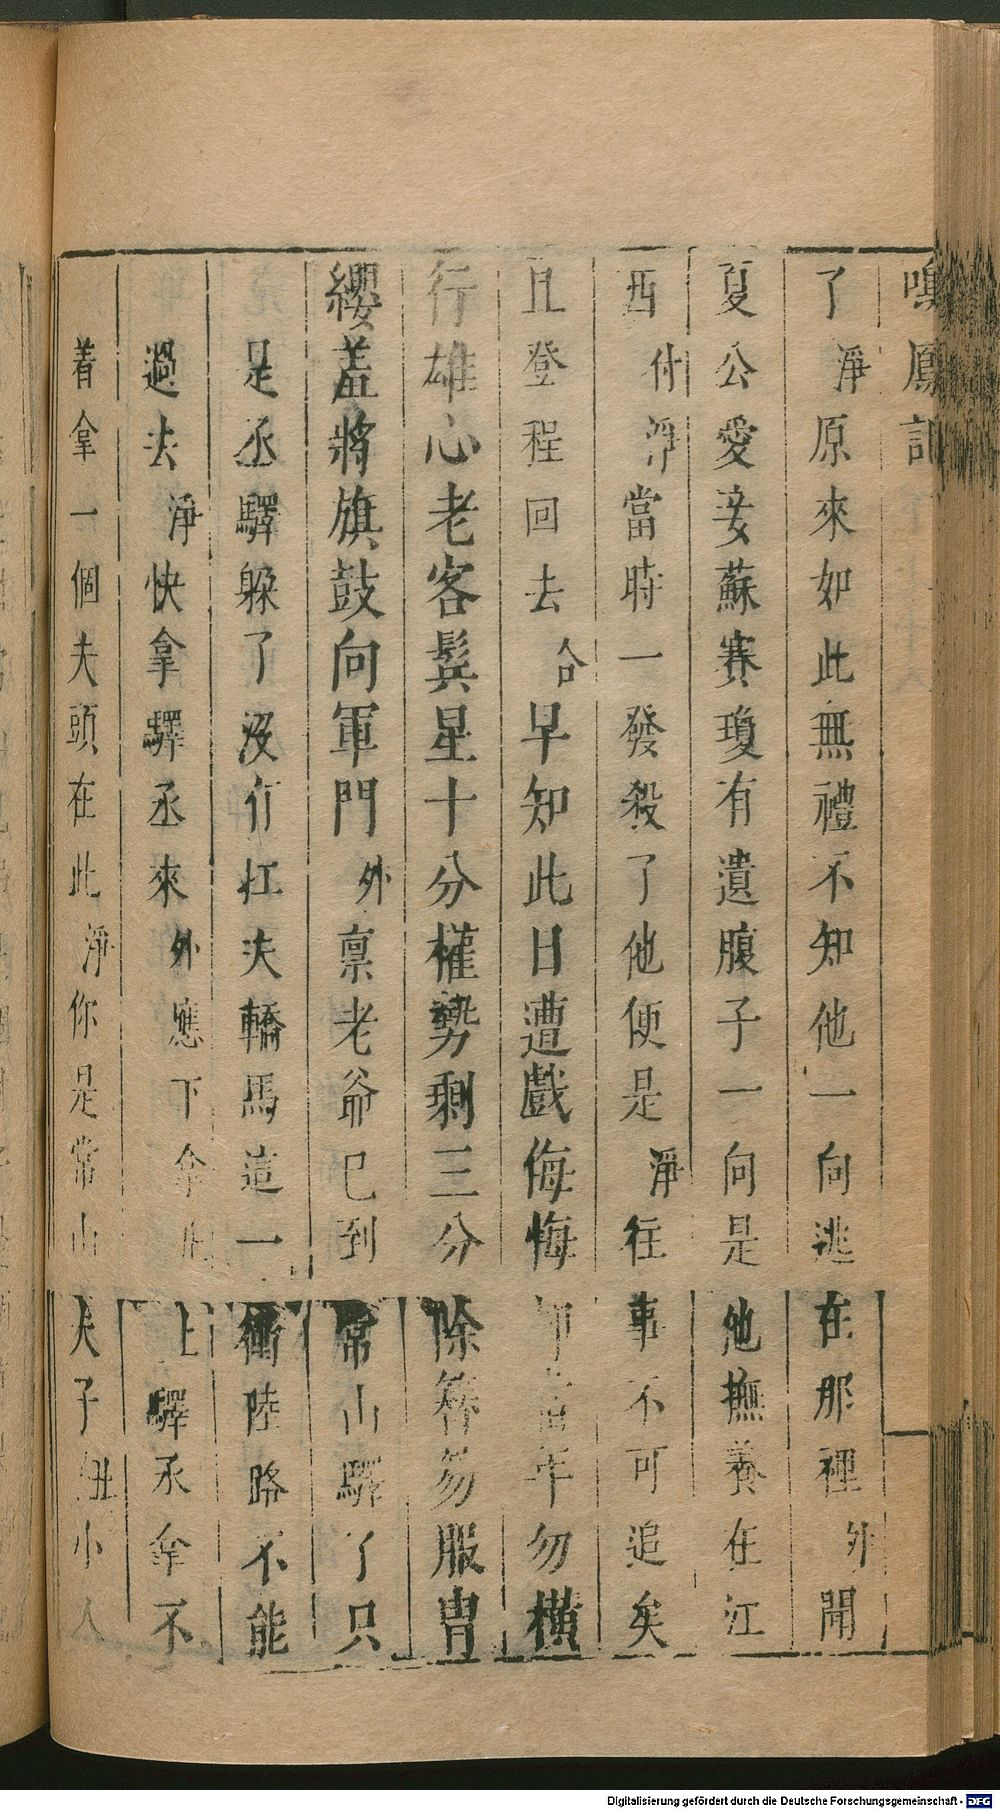 鳴鳳記
了淨原來如此無禮不知他一向逃在那裡外聞
夏公愛妾蘇賽瓊有遺腹子一向是他撫養在江
西付淨當時一發殺了他便是淨往事不可追矣
且登程回去合早知此日遭戲侮悔 當年勿橫
行雄心老客鬂星十分權勢剩三分除簪笏服冑
纓羞將旗鼓向軍門外禀老爺已到常山驛了只
是丞驛躲了沒有扛夫轎馬這一衝陸路不能
過去淨快拿驛丞來外應下拿 上驛丞拿不
着拿一個夫頭在此淨你是常山夫子丑小人
Digitalisierung gefördert durch die Deutsche Forschungsgemeinschaft - DFG